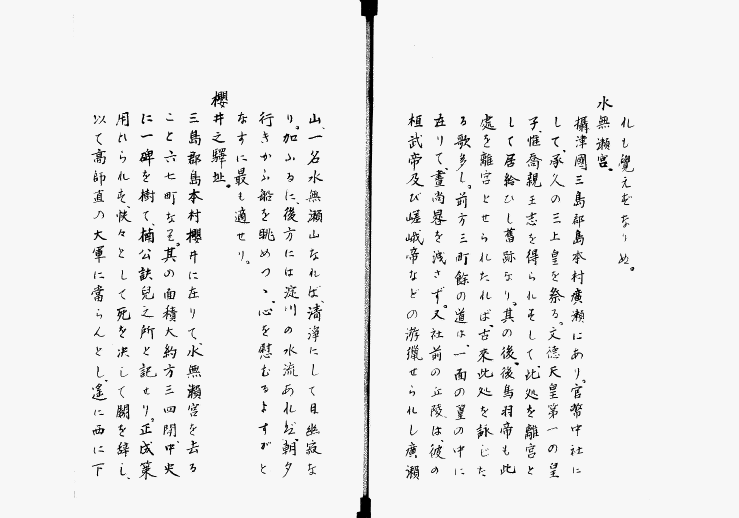 れも覺えずなりぬ。
水無瀬宮。
攝津國三島郡島本村廣瀬にあり。官幣中社に
して、承久の三上皇を祭る。文德天皇第一の皇
子、惟喬親王志を得られずして、此処を離宮と
して居給ひし舊跡なり。其の後、後鳥羽帝も此
處を離宮とせられたれば、古來此処を詠じた
る歌多し。前方三町餘の道は、一面の篁の中に
在りて、晝尚暑を洩さず。又社前の丘陵は、彼の
桓武帝及び嵯峨帝などの游獵せられし廣瀬
山、一名水無瀬山なれば、清淨にして且幽寂な
り。加ふるに、後方には淀川の水流あれば、朝夕
行きかふ船を眺めつゝ、心を慰むるよすがと
なすに最も適せり。
櫻井之驛址。
三島郡島本村櫻井に在りて、水無瀬宮を去る
こと六七町なる。其の面積大約方三四間、中央
に一碑を樹て、楠公訣兒之所と記せり。正成策
用ひられず、怏々として死を決して闕を辞し、
以て高師直の大軍に當らんとし、遙に西に下